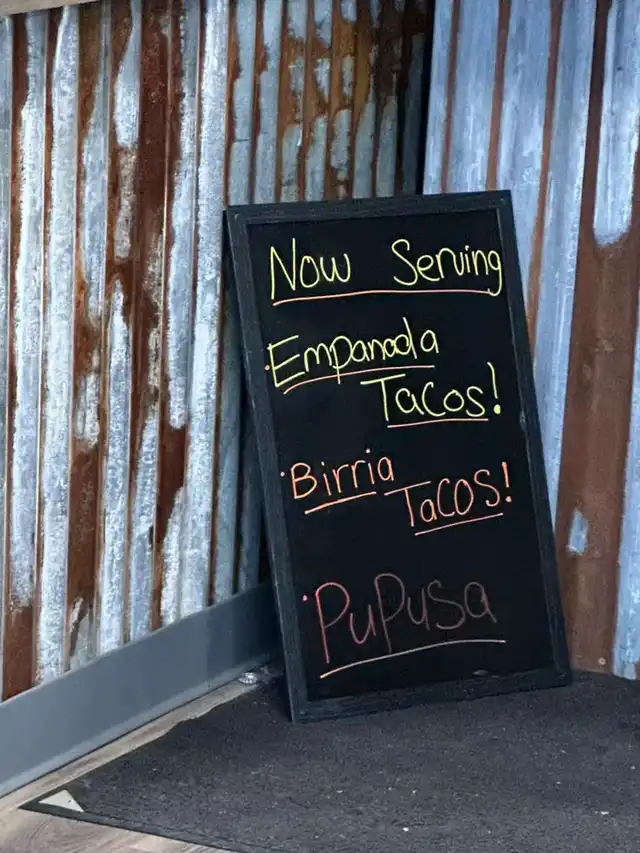 Now Serving
·Empanada
Tacos!
·Birria
Tacos!
·Pupusa